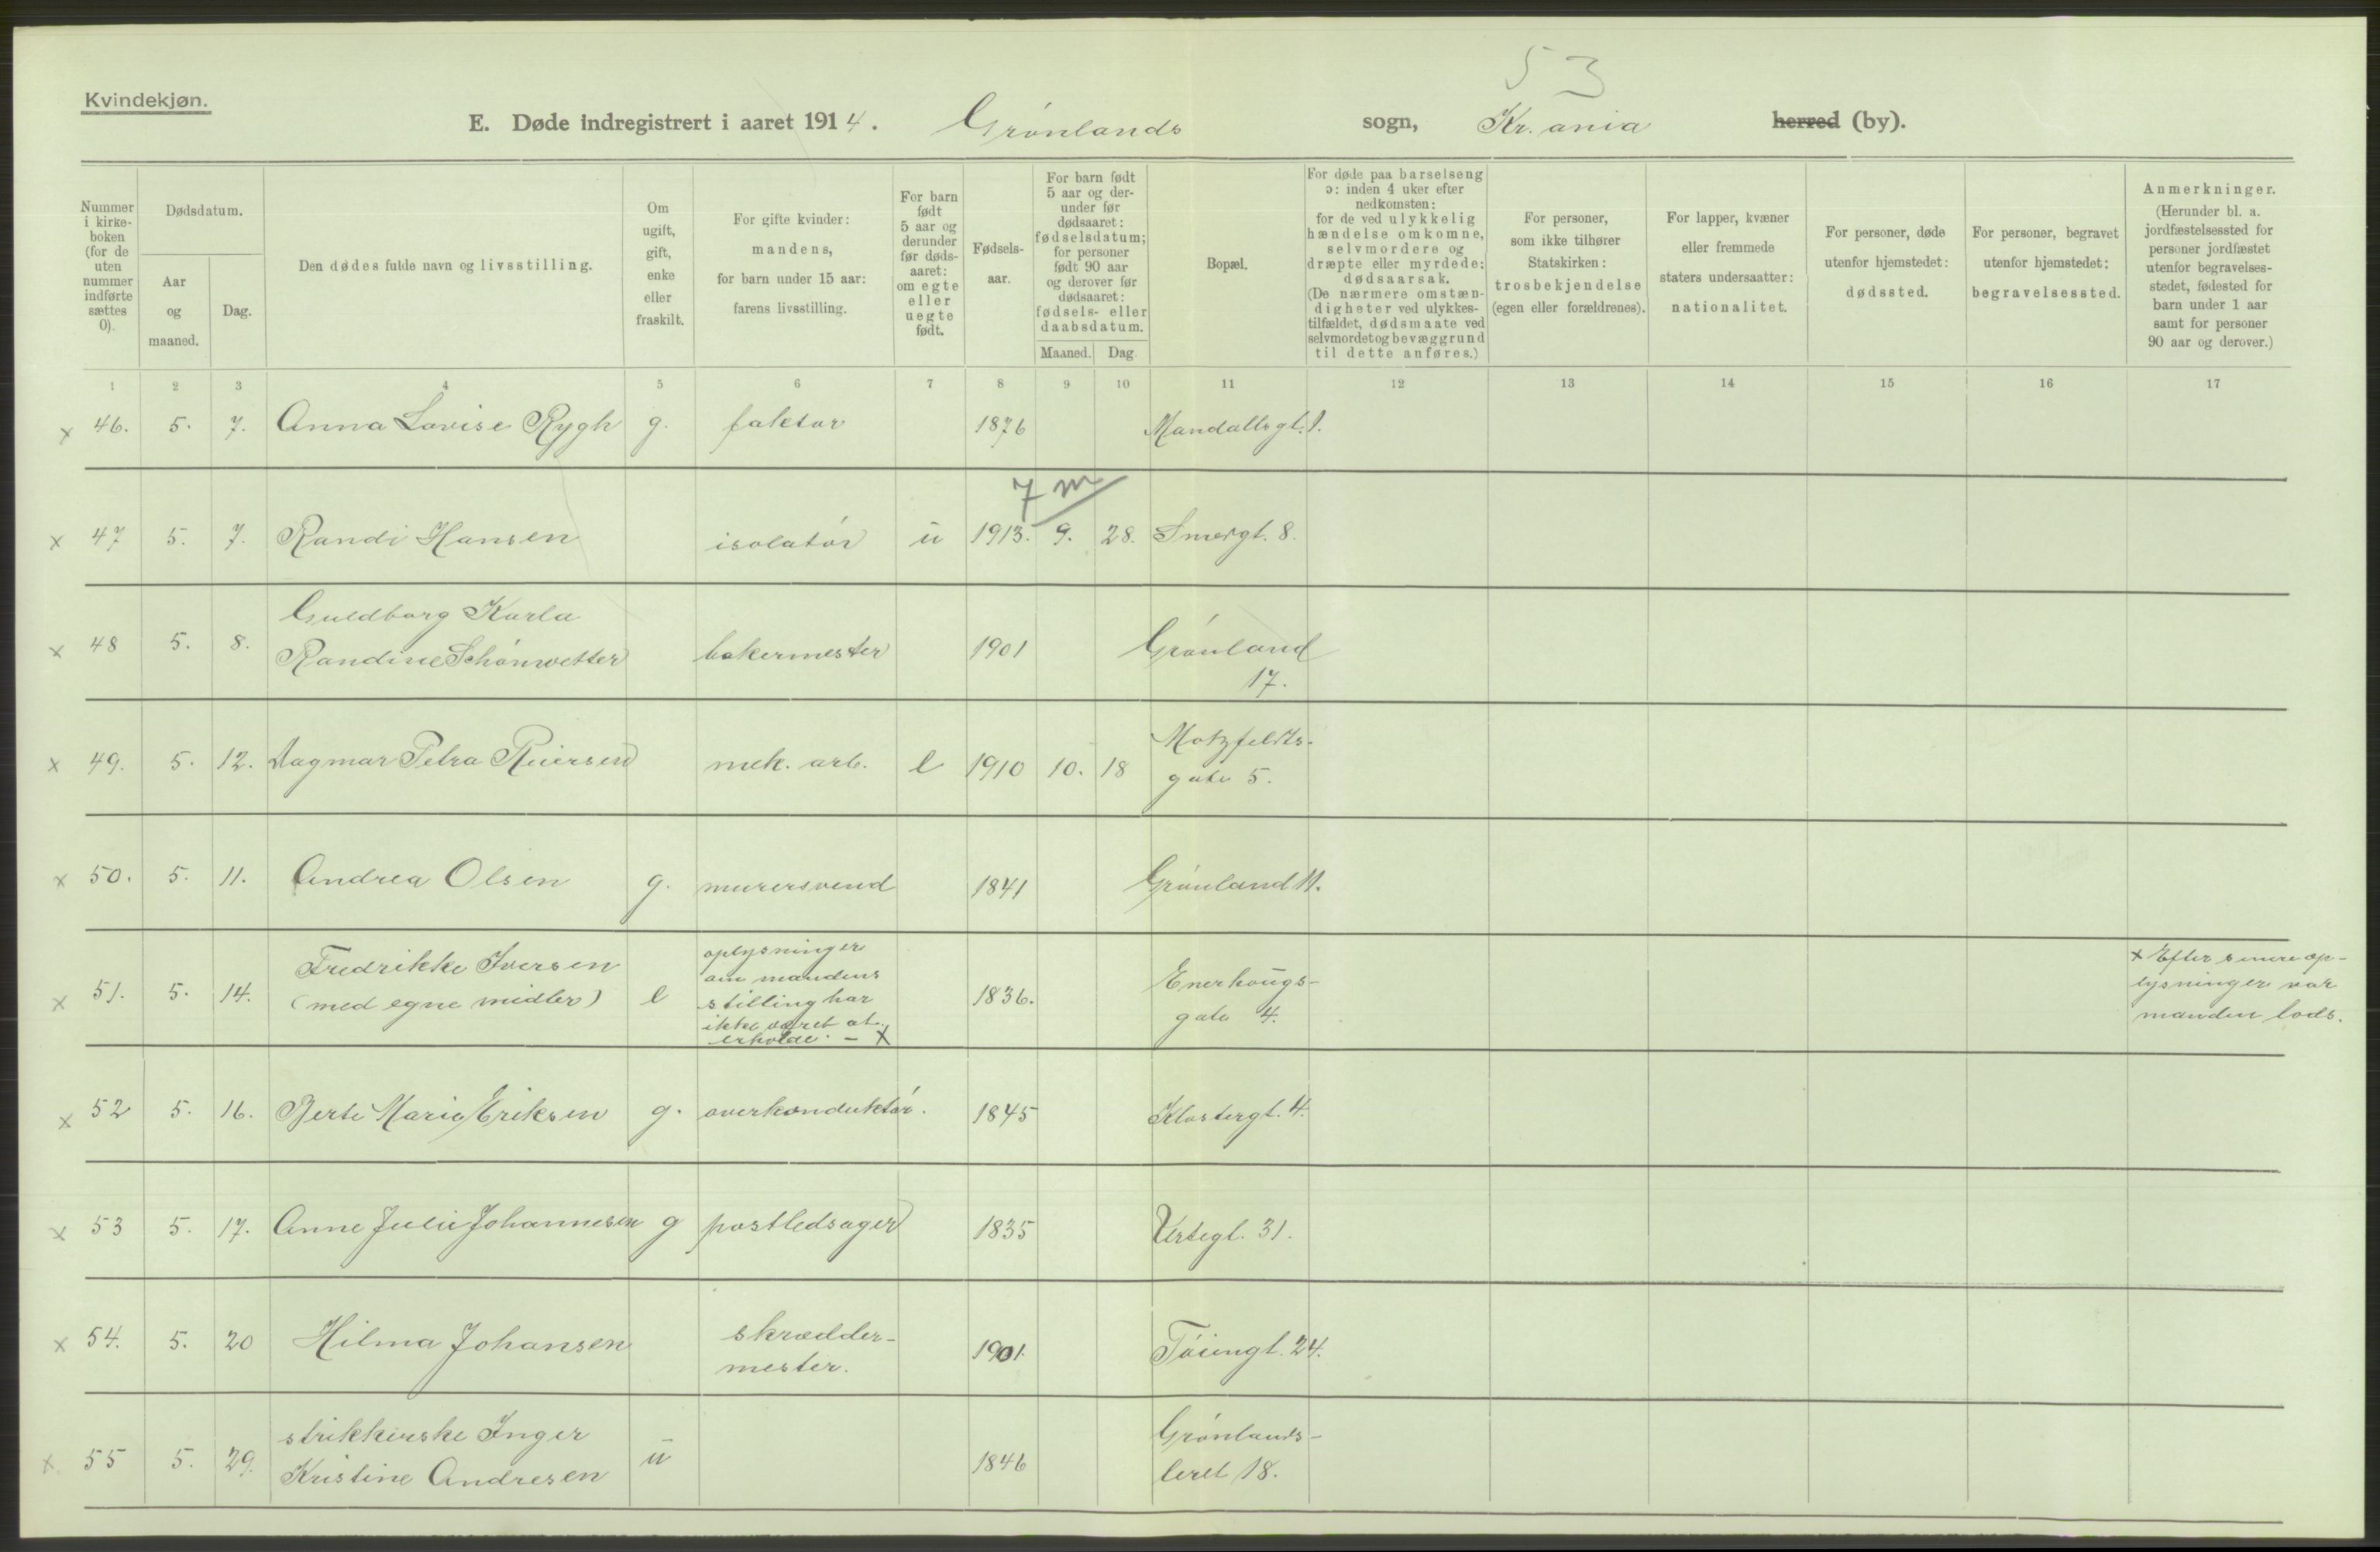 53
Kvindekjøn.
E. Døde indregistrert i aaret 1914. Grønlands sogn, Kr.ania herred (by).
Nummer i kirke- boken (for de uten nummer indførte sættes 0).
Dødsdatum.
Aar og maaned.
Dag.
Den dødes fulde navn og livsstilling.
Om ugift, gift, enke eller fraskilt.
For gifte kvinder: mandens, for barn under 15 aar: farens livsstilling.
For barn født 5 aar og derunder før døds- aaret: om egte eller uegte født.
Fødsels- aar.
For barn født 5 aar og der- under før dødsaaret: fødselsdatum; for personer født 90 aar og derover før dødsaaret: fødsels- eller daabsdatum.
Maaned. Dag.
Bopæl.
For døde paa barselseng ɔ: inden 4 uker efter nedkomsten: for de ved ulykkelig hændelse omkomne, selvmordere og dræpte eller myrdede: dødsaarsak. (De nærmere omstæn- digheter ved ulykkes- tilfældet, dødsmaate ved selvmordet og bevæggrund til dette anføres.)
For personer, som ikke tilhører Statskirken: trosbekjendelse (egen eller forældrenes).
For lapper, kvæner eller fremmede staters undersaatter: nationalitet.
For personer, døde utenfor hjemstedet: dødssted.
For personer, begravet utenfor hjemstedet: begravelsessted.
Anmerkninger. (Herunder bl. a. jordfæstelsessted for personer jordfæstet utenfor begravelses- stedet, fødested for barn under 1 aar samt for personer 90 aar og derover.)
1 2 3 4 5 6 7 8 9 10 11 12 13 14 15 16 17
x 46. 5. 7. Anna Lovise Rygh g. faktor 1876 Mandallsgt. 1.
7 m
x 47 5. 7. Randi Hansen isolatør u 1913. 9. 28. Smedgt. 8.
x 48 5. 8. Guldborg Karla
Randine Schönwetter bakermester 1901 Grønland
17.
x 49. 5. 12. Dagmar Petra Reiersen mek. arb. e 1910 10. 18 Motzfeldts-
gate 5.
x 50. 5. 11. Andrea Olsen g. murersvend 1841 Grønland 11.
x 51. 5. 14. Fredrikke Iversen
(med egne midler) e oplysninger
om mandens
stilling har
ikke været at
erholde. - x
1836. Enerhougs-
gate 4.
x Efter senere op-
lysninger var
manden lods.
x 52 5. 16. Berte Marie Eriksen g. overkonduktør. 1845 Klostergt. 4.
x 53 5. 17. Anne Julie Johannesen g postledsager 1835 Urtegt. 31.
x 54. 5. 20 Hilma Johansen skrædder-
mester. 1901. Tøiengt. 24.
x 55 5. 29. strikkerske Inger
Kristine Andresen u 1846 Grønlands-
leret 18.